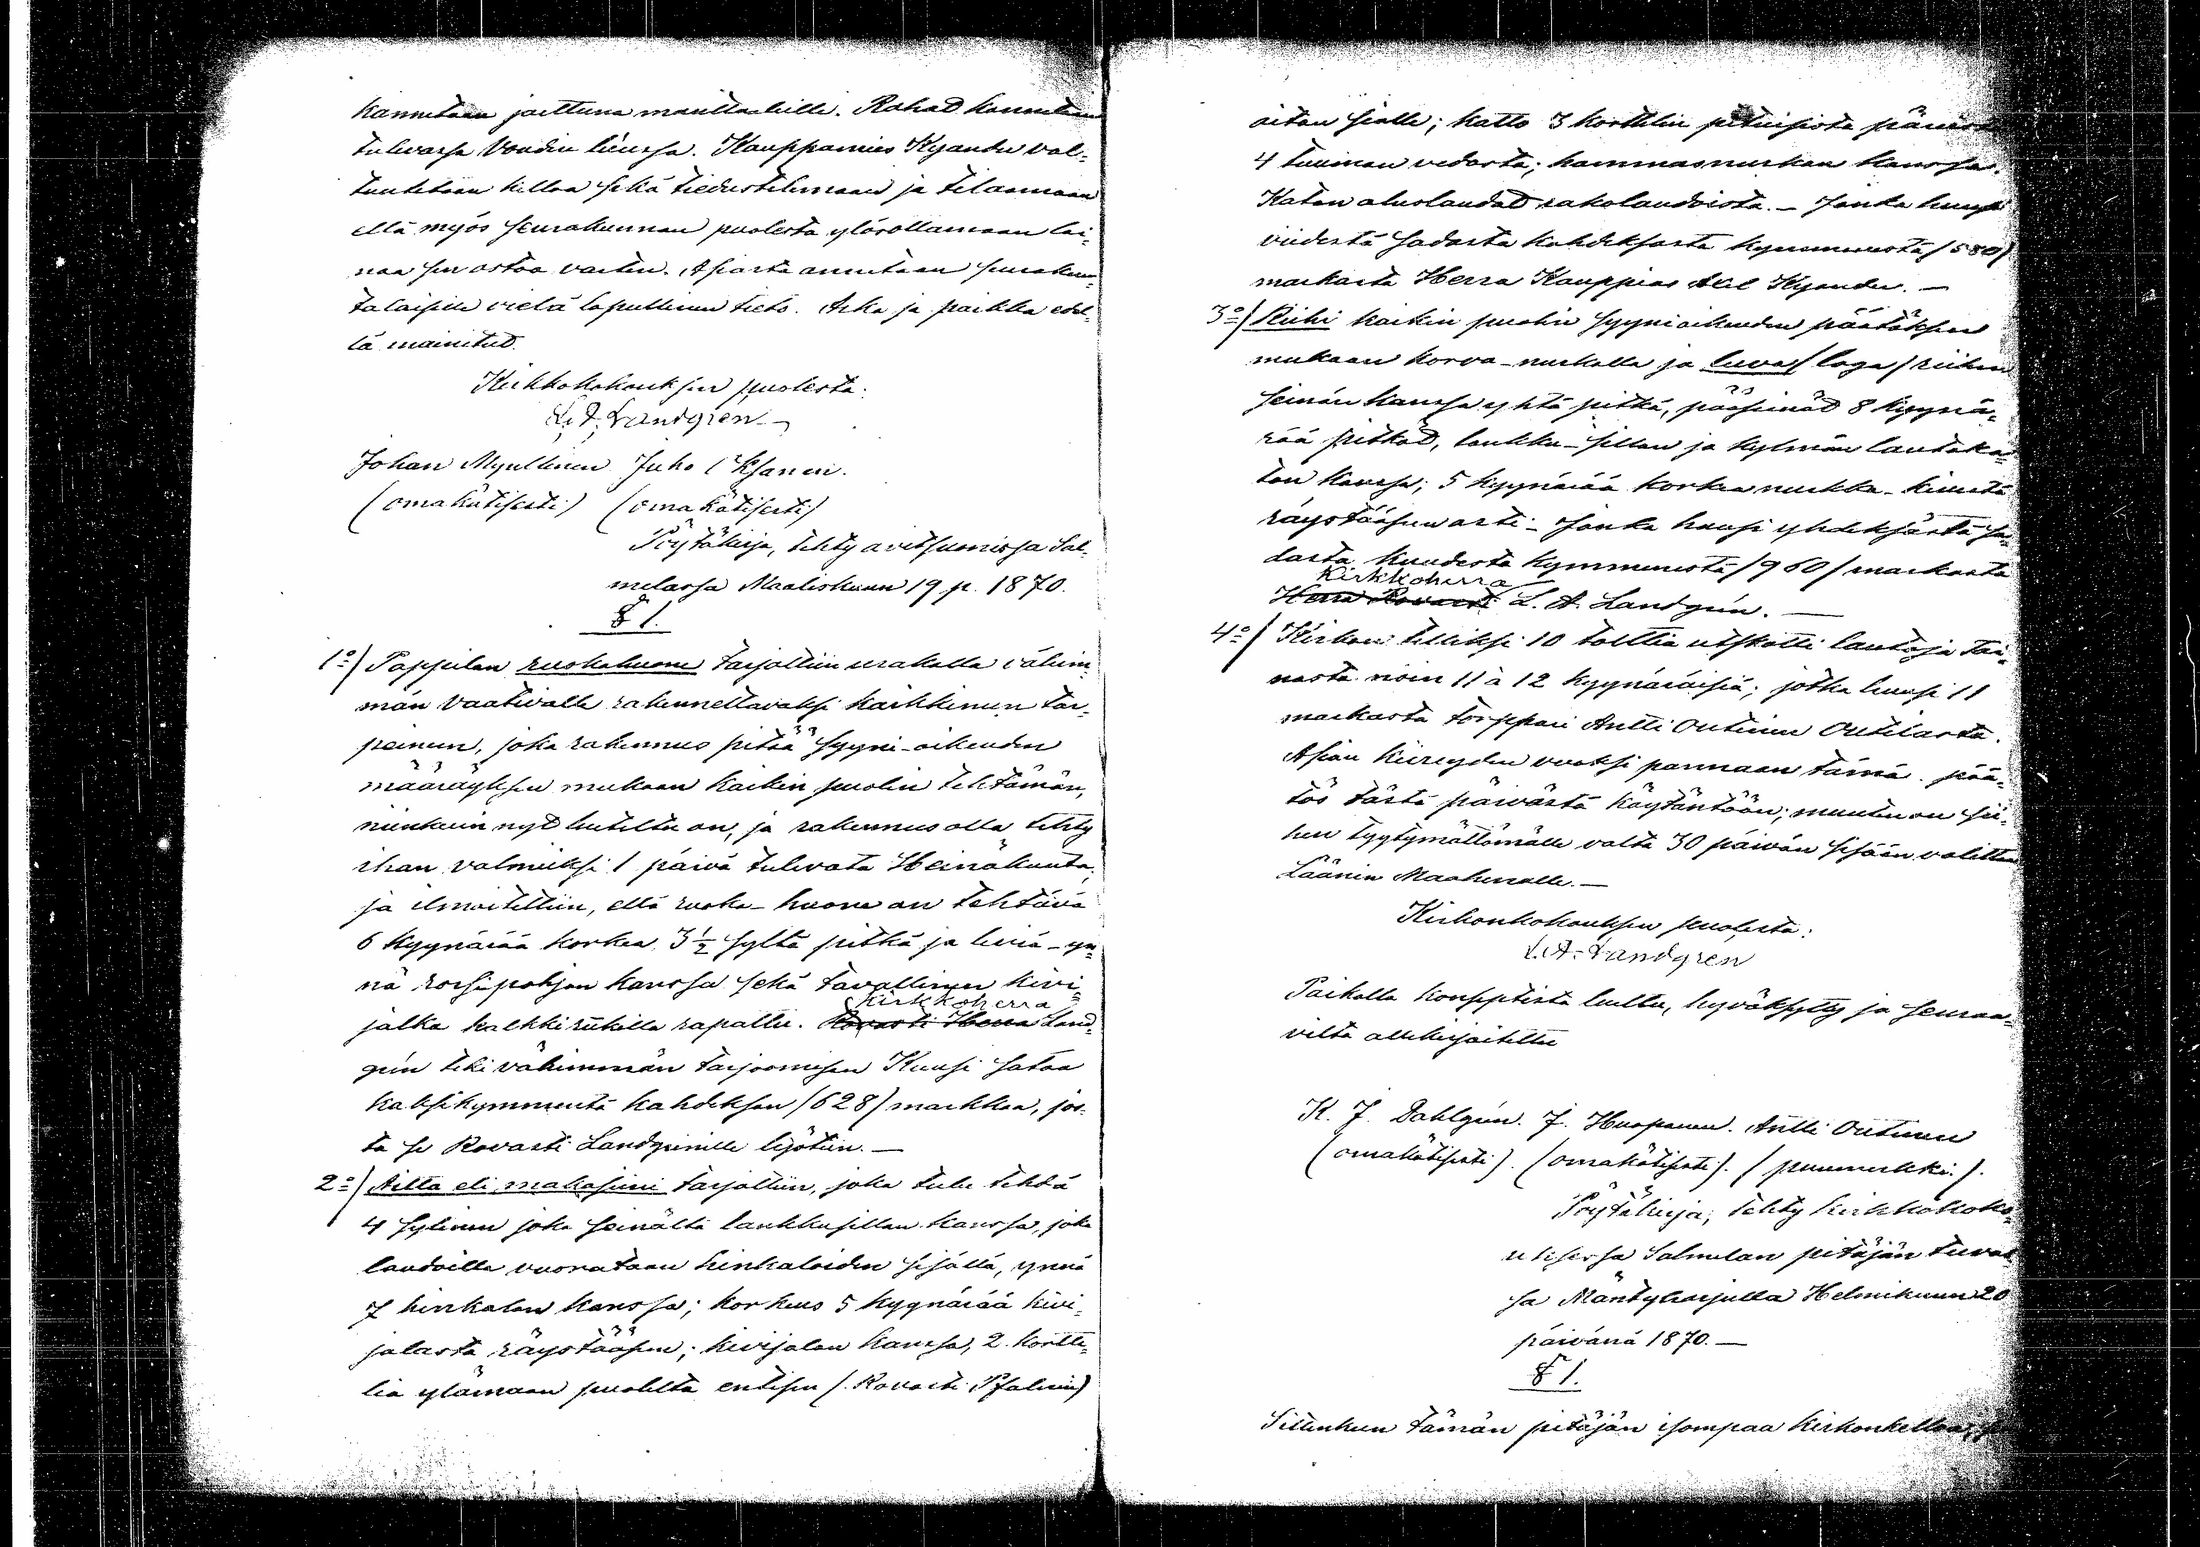 kannetaan jaettuna manttaleille. Rahat kannetaan
tulevassa Voudin . Kauppamies Kyander val-
tuutetaan kelloa sekä tiedustelemaan ja tilaamaan
että myös seurakunnan puolesta ylösottamaan lai-
naa sen ostoa varten. Asiasta annetaan seurakun-
talaisille vielä lopullinen tieto. Aika ja paikka edel-
lä mainitut.
Kirkkokokouksen puolesta:
L. A. Landgren
Johan Myyllinen Juho
(omakätisesti) (omakätisesti)
Pöytäkirja, tehty Sal-
melassa Maaliskuun 19 p. 1870.
§ 1.
1:o) Pappilan ruokahuone tarjottiin urakalla vähim-
män vaativalle rakennettavaksi kaikkineen tar-
peineen, joka rakennus pitää syyni-oikeuden
määräyksen mukaan kaikin puolin tehtämän,
niinkuin nyt lueteltu on, ja rakennus olla tehty
ihan valmiiksi 1 päivä tulevata Heinäkuuta,
ja ilmoitettiin, että ruoka-huone on tehtävä
6 kyynärää korkea 3½ syltä pitkä ja leviä - yn-
nä rossipohjan kanssa sekä tavallinen kivi-
jalka kalkki ruukilla rapattu. Kirkkoherra Rovasti Herra Land-
grén teki vähimmän tarjoomisen Kuusi sataa
kaksikymmentä kahdeksan /628/ markkaa, jos-
ta se Rovasti Landgrenille lyötiin. —
2:o) Aitta eli makasiini tarjottiin, joka tulee tehtä
4 sylinen joka seinältä lankkusillan kanssa, joka
laudoilla vuorataan hinkaloiden sisällä, ynnä
7 hinkalon kanssa; korkeus 5 kyynärää kivi-
jalasta räystääsen; kivijalan kanssa, 2 kortte-
lia ylämaan puolelta entisen /:Rovasti
aitan sialle; katto 3 korttelin pituisista päreistä
4 tuuman vedosta; hammasnurkan kanssa.
Katon aluslaudat rakolaudoista. — Jonka huusi
viidestä sadasta kahdeksasta kymmenestä /580/
markasta Herra Kauppias Axel Kyander. —
3:o) Riihi kaikin puolin syynioikeuden päätöksen
mukaan korva-nurkalla ja luva /loga/ riihen
seinän kanssa yhtä pitkä, pääseinät 8 kyynä-
rää pitkät, lankku-sillan ja kylmän lautaka-
ton kanssa; 5 kyynärää korkea nurkka-kivestä
räystääsen asti. Jonka huusi yhdeksästä sa-
dasta kuudesta kymmenestä /960/ markasta
Kirkkoherra
Herra Rovasti L. A. Landgrén. —
4:o) Kirkon telliksi 10 tolttia utskotti lautoja tar-
 noin 11 à 12 kyynäräisiä; jotka huusi 11
markasta torppari Antti Outinen Outilasta.
Asian kiireyden vuoksi pannaan tämä pää-
tös tästä päivästä käytäntöön; muuten on sii-
hen tyytymättömälle valta 30 päivän sisään valittaa
Läänin Maaherralle. —
Kirkonkokouksen puolesta:
L. A. Landgren
Paikalla konseptista luettu, hyväksytty ja seuraa-
vilta allekirjoitettu
K. J. Dahlgrén. J. Huopanen. Antti Outinen
(omakätisesti). (omakätisesti). (puumerkki.).
Pöytäkirja, tehty kirkkokoko-
uksessa Salmelan pitäjän tuvas-
sa Mäntyharjulla Helmikuun 20
päivänä 1870. —
§ 1.
Sittenkun tämän pitäjän isompaa kirkonkelloa,